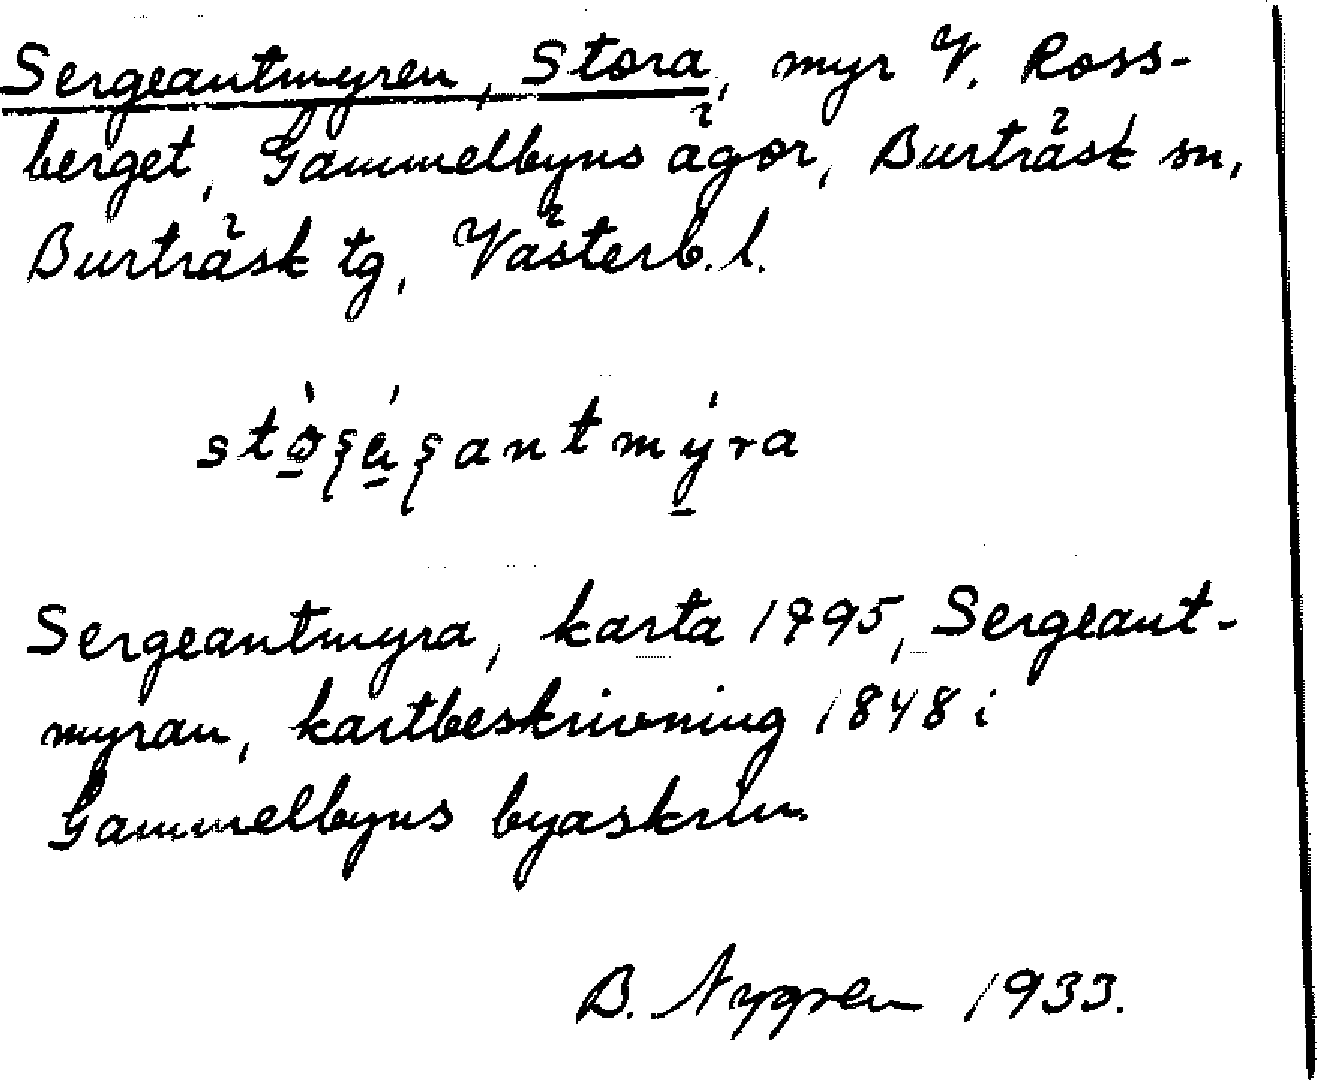 Sergeantmyren, Stora, myr V. Ross-
berget, Gammelbyns ägor, Burträsk sn,
Burträsk tg, Västerb. l.
Sergeantmyra, karta 1795, Sergeant-
myran, kartbeskrivning 1848 i
Gammelbyns byaskrin
B. Nygren 1933.